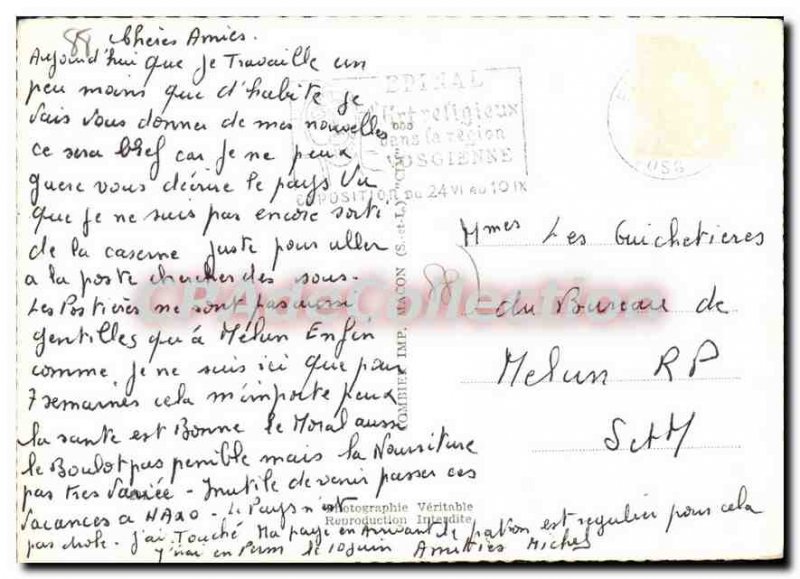 88 Chères Amies.
Aujourd'hui que je Travaille un
peu moins que d'habite je
vais vous donner de mes nouvelles
ce sera bref car je ne peux
guere vous décrire le pays Vu
que je ne suis pas encore sorti
de la caserne juste pour aller
a la poste chercher des sous-
Les Postières ne sont pas aussi
gentilles qu'à Melun Enfin
comme je ne suis ici que pour
7 semaines cela m'importe peux
la santé est Bonne le Moral aussi
le Boulot pas penible mais la Nourriture
pas tres Variée - Inutile de venir passer ces
Vacances a HAXO - Le Pays n'est
pas drole - j'ai Touché Ma paye en Arrivant le patron est regulier pour cela
J'irai en Perm le 10 juin Amitiés Michel
EPINAL
l'Art religieux
dans la région
VOSGIENNE
EXPOSITION DU 24 VI AU 10 IX
COMBIER IMP. MACON (S.-et-L.) "CIM"
88
Mmes Les Guichetieres
du Bureau de
Melun RP
S et M
Photographie Véritable
Reproduction Interdite
CPAdeCollection